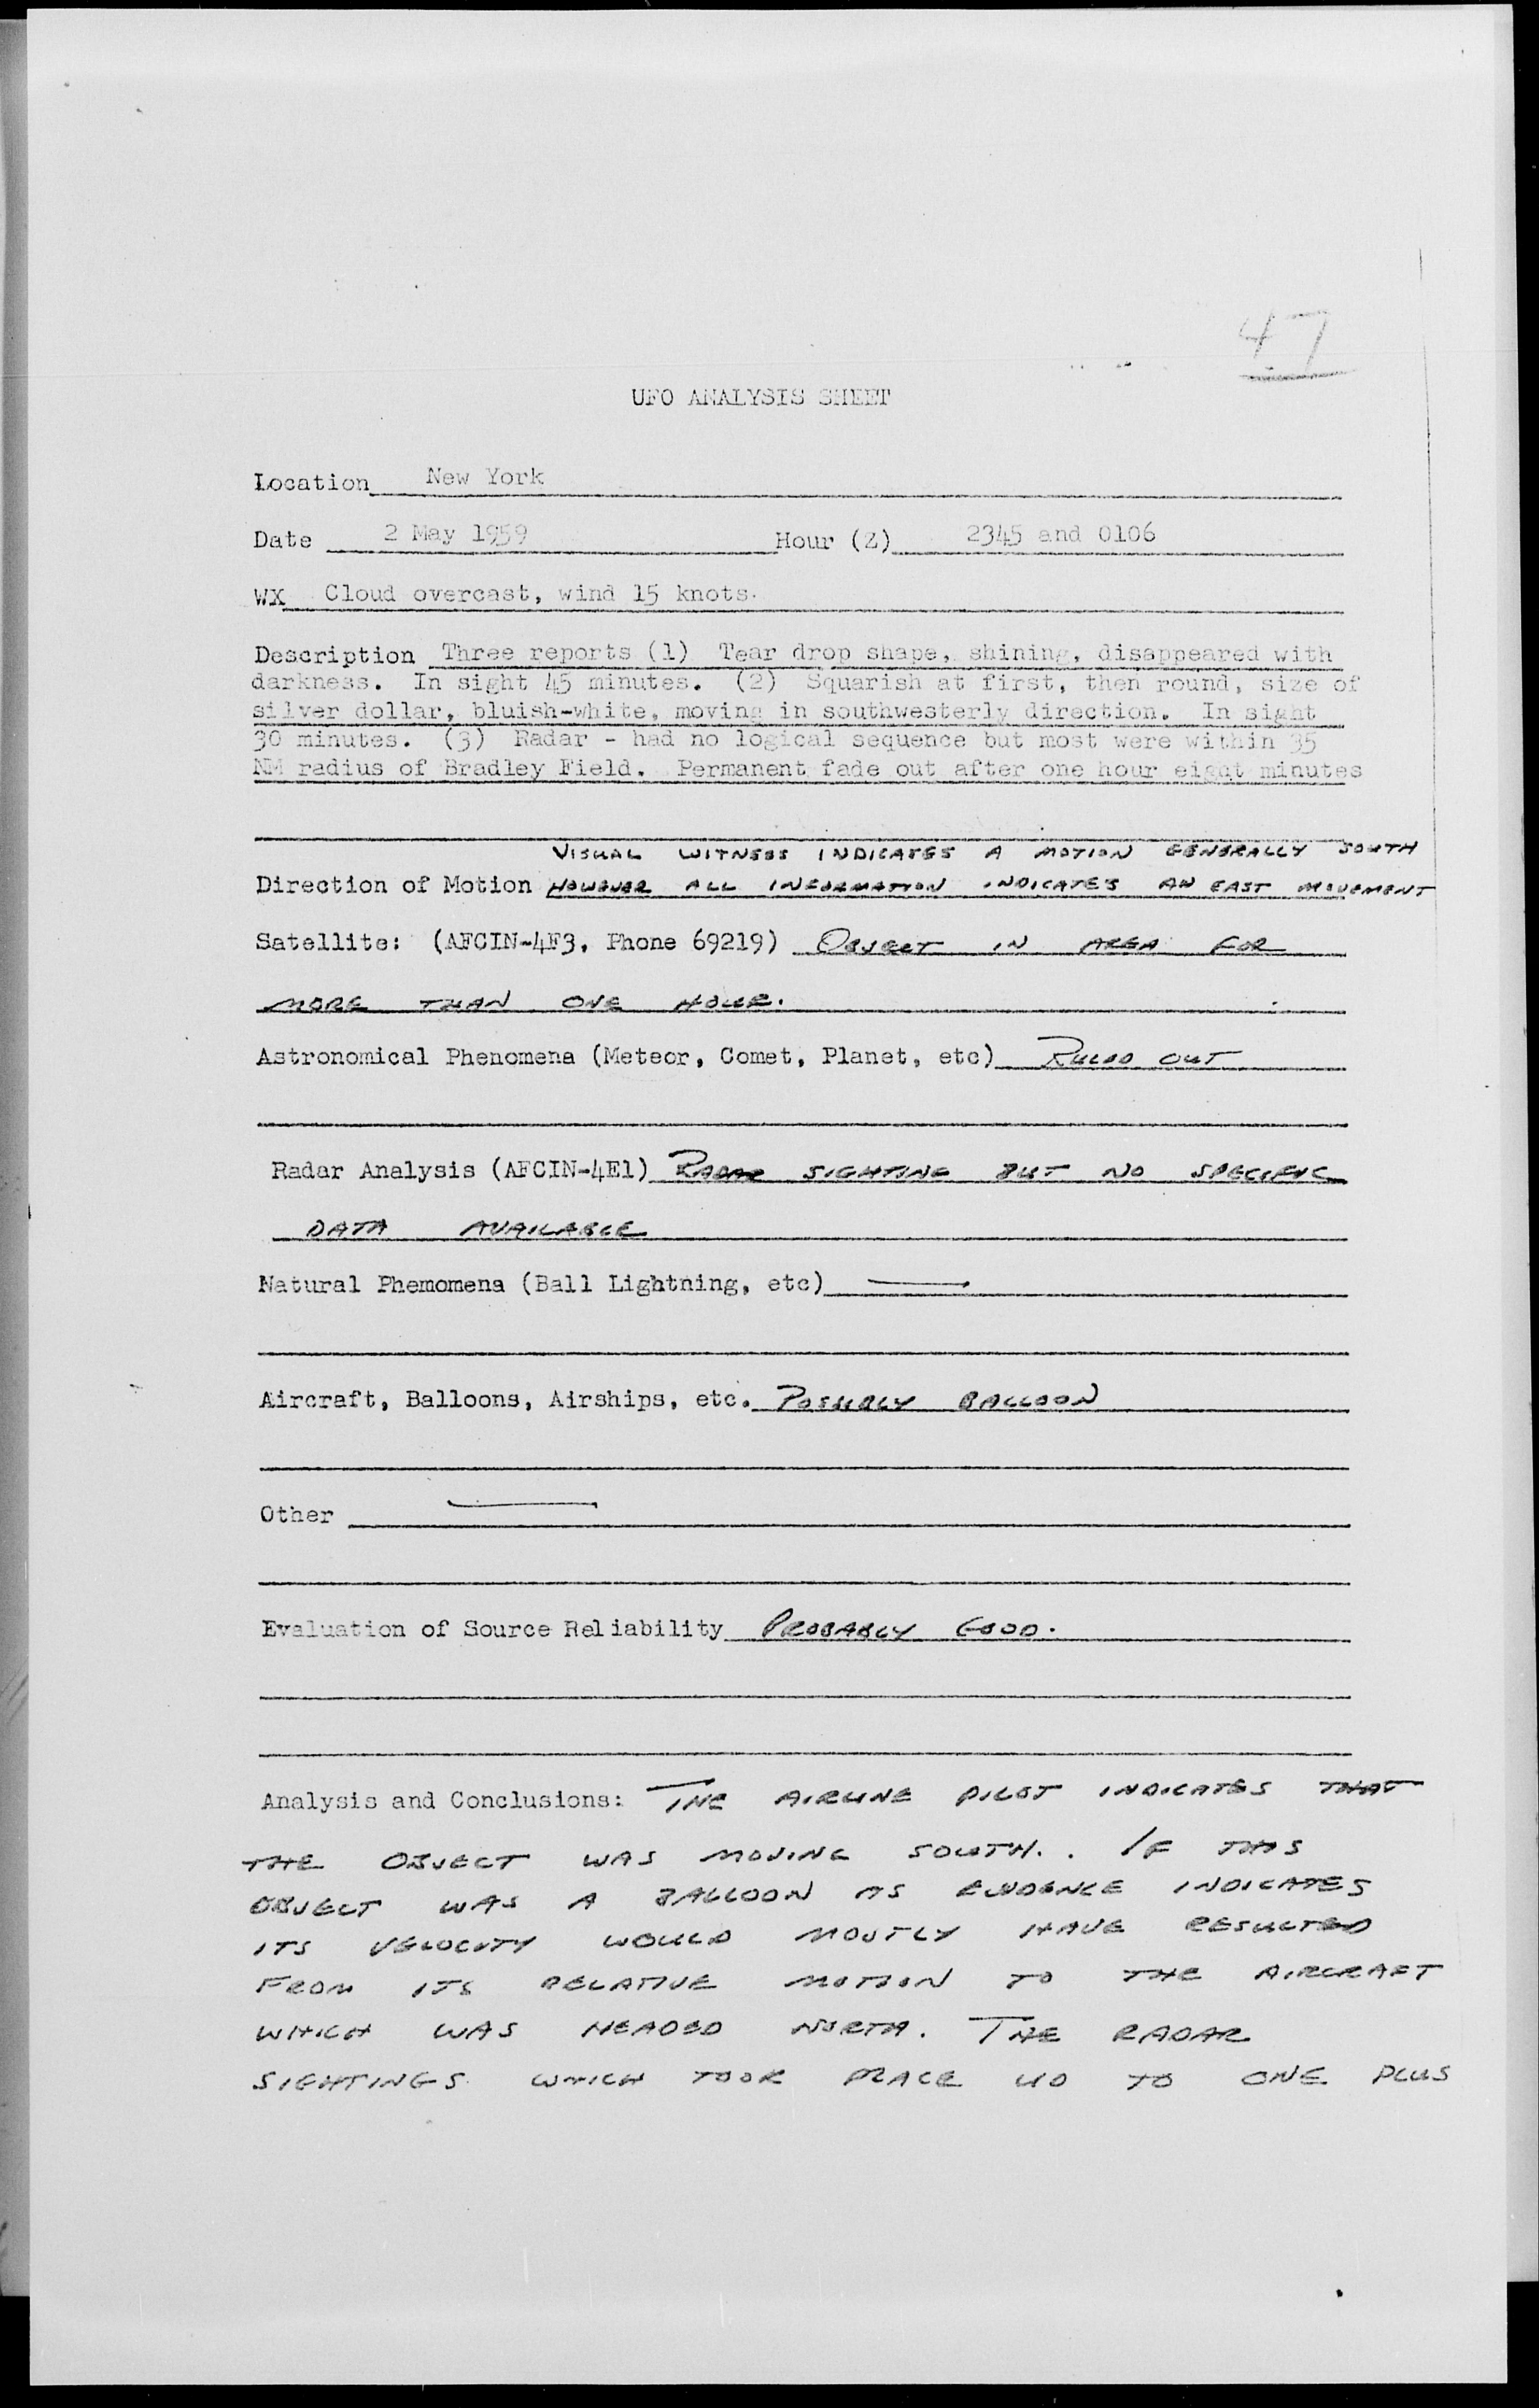 47
UFO ANALYSIS SHEET
Location New York
Date 2 May 1959 Hour (Z) 2345 and 0106
WX Cloud overcast, wind 15 knots.
Description Three reports (1) Tear drop shape, shining, disappeared with
darkness. In sight 45 minutes. (2) Squarish at first, then round, size of
silver dollar, bluish-white, moving in southwesterly direction. In sight
30 minutes. (3) Radar - had no logical sequence but most were within 35
NM radius of Bradley Field. Permanent fade out after one hour eight minutes
VISUAL WITNESS INDICATES A MOTION GENERALLY SOUTH
Direction of Motion HOWEVER ALL INFORMATION INDICATES AN EAST MOVEMENT
Satellite: (AFCIN-4F3, Phone 69219) OBJECT IN AREA FOR
MORE THAN ONE HOUR.
Astronomical Phenomena (Meteor, Comet, Planet, etc) RULED OUT
Radar Analysis (AFCIN-4E1) RADAR SIGHTING BUT NO SPECIFIC
DATA AVAILABLE
Natural Phemomena (Ball Lightning, etc) —
Aircraft, Balloons, Airships, etc. POSSIBLY BALLOON
Other —
Evaluation of Source Reliability PROBABLY GOOD.
Analysis and Conclusions: THE AIRLINE PILOT INDICATES THAT
THE OBJECT WAS MOVING SOUTH. . IF THIS
OBJECT WAS A BALLOON AS EVIDENCE INDICATES
ITS VELOCITY WOULD MOSTLY HAVE RESULTED
FROM ITS RELATIVE MOTION TO THE AIRCRAFT
WHICH WAS HEADED NORTH. THE RADAR
SIGHTINGS WHICH TOOK PLACE UP TO ONE PLUS